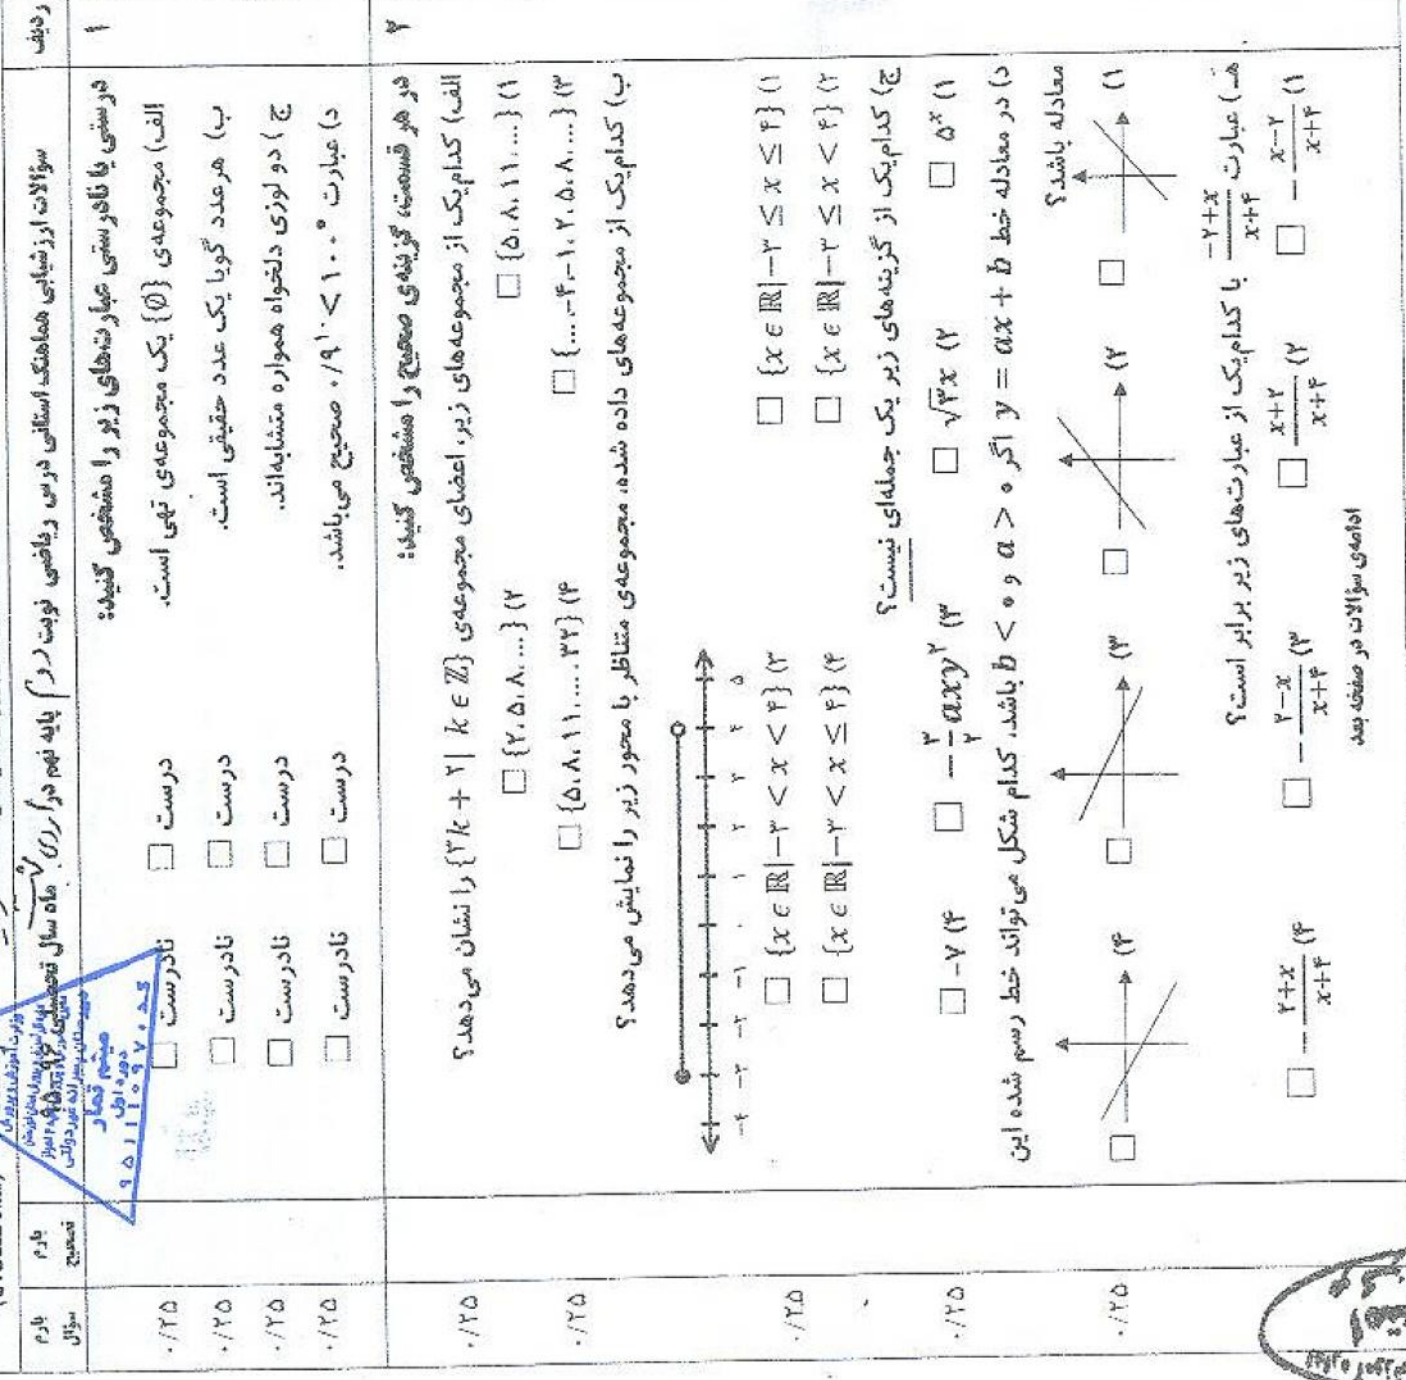 ردیف
سؤالات ارزشیابی هماهنگ استانی درس ریاضی نوبت دوم پایه نهم در
ماه سال تحصیلی ۹۶-۹۵
بارم تصحیح
بارم سؤال
۱
درستی یا نادرستی عبارت‌های زیر را مشخص کنید:
الف) مجموعه‌ی {∅} یک مجموعه‌ی تهی است. درست □ نادرست □ ۰/۲۵
ب) هر عدد گویا یک عدد حقیقی است. درست □ نادرست □ ۰/۲۵
ج) دو لوزی دلخواه همواره متشابه‌اند. درست □ نادرست □ ۰/۲۵
د) عبارت ۰/۹^۱۰ < ۱۰۰^۰ صحیح می‌باشد. درست □ نادرست □ ۰/۲۵
۲
در هر قسمت، گزینه‌ی صحیح را مشخص کنید:
الف) کدام‌یک از مجموعه‌های زیر، اعضای مجموعه‌ی {۳k + ۲| k ∈ ℤ} را نشان می‌دهد؟ ۰/۲۵
۱) {۵،۸،۱۱،...} □ ۲) {۲،۵،۸،...} □
۳) {...،-۴،-۱،۲،۵،۸،...} □ ۴) {۵،۸،۱۱،...،۳۲} □
ب) کدام‌یک از مجموعه‌های داده شده، مجموعه‌ی متناظر با محور زیر را نمایش می‌دهد؟ ۰/۲۵
-۴ -۳ -۲ -۱ ۰ ۱ ۲ ۳ ۴ ۵
۱) {x ∈ ℝ|−۳ ≤ x ≤ ۴} □ ۳) {x ∈ ℝ|−۳ < x < ۴} □ ۰/۲۵
۲) {x ∈ ℝ|−۳ ≤ x < ۴} □ ۴) {x ∈ ℝ|−۳ < x ≤ ۴} □
ج) کدام‌یک از گزینه‌های زیر یک جمله‌ای نیست؟
۱) ۵^x □ ۲) √۳x □ ۳) −۳/۲ axy^۲ □ ۴) -۷ □ ۰/۲۵
د) در معادله خط y = ax + b اگر a > ۰ و b < ۰ باشد، کدام شکل می‌تواند خط رسم شده این
معادله باشد؟
۱) □ ۲) □ ۳) □ ۴) □ ۰/۲۵
هـ) عبارت (-۲+x)/(x+۴) با کدام‌یک از عبارت‌های زیر برابر است؟
۱) −(x−۲)/(x+۴) □ ۲) (x+۲)/(x+۴) □ ۳) −(۲−x)/(x+۴) □ ۴) −(۲+x)/(x+۴) □
ادامه‌ی سؤالات در صفحه بعد
میثم تمار
دوره اول